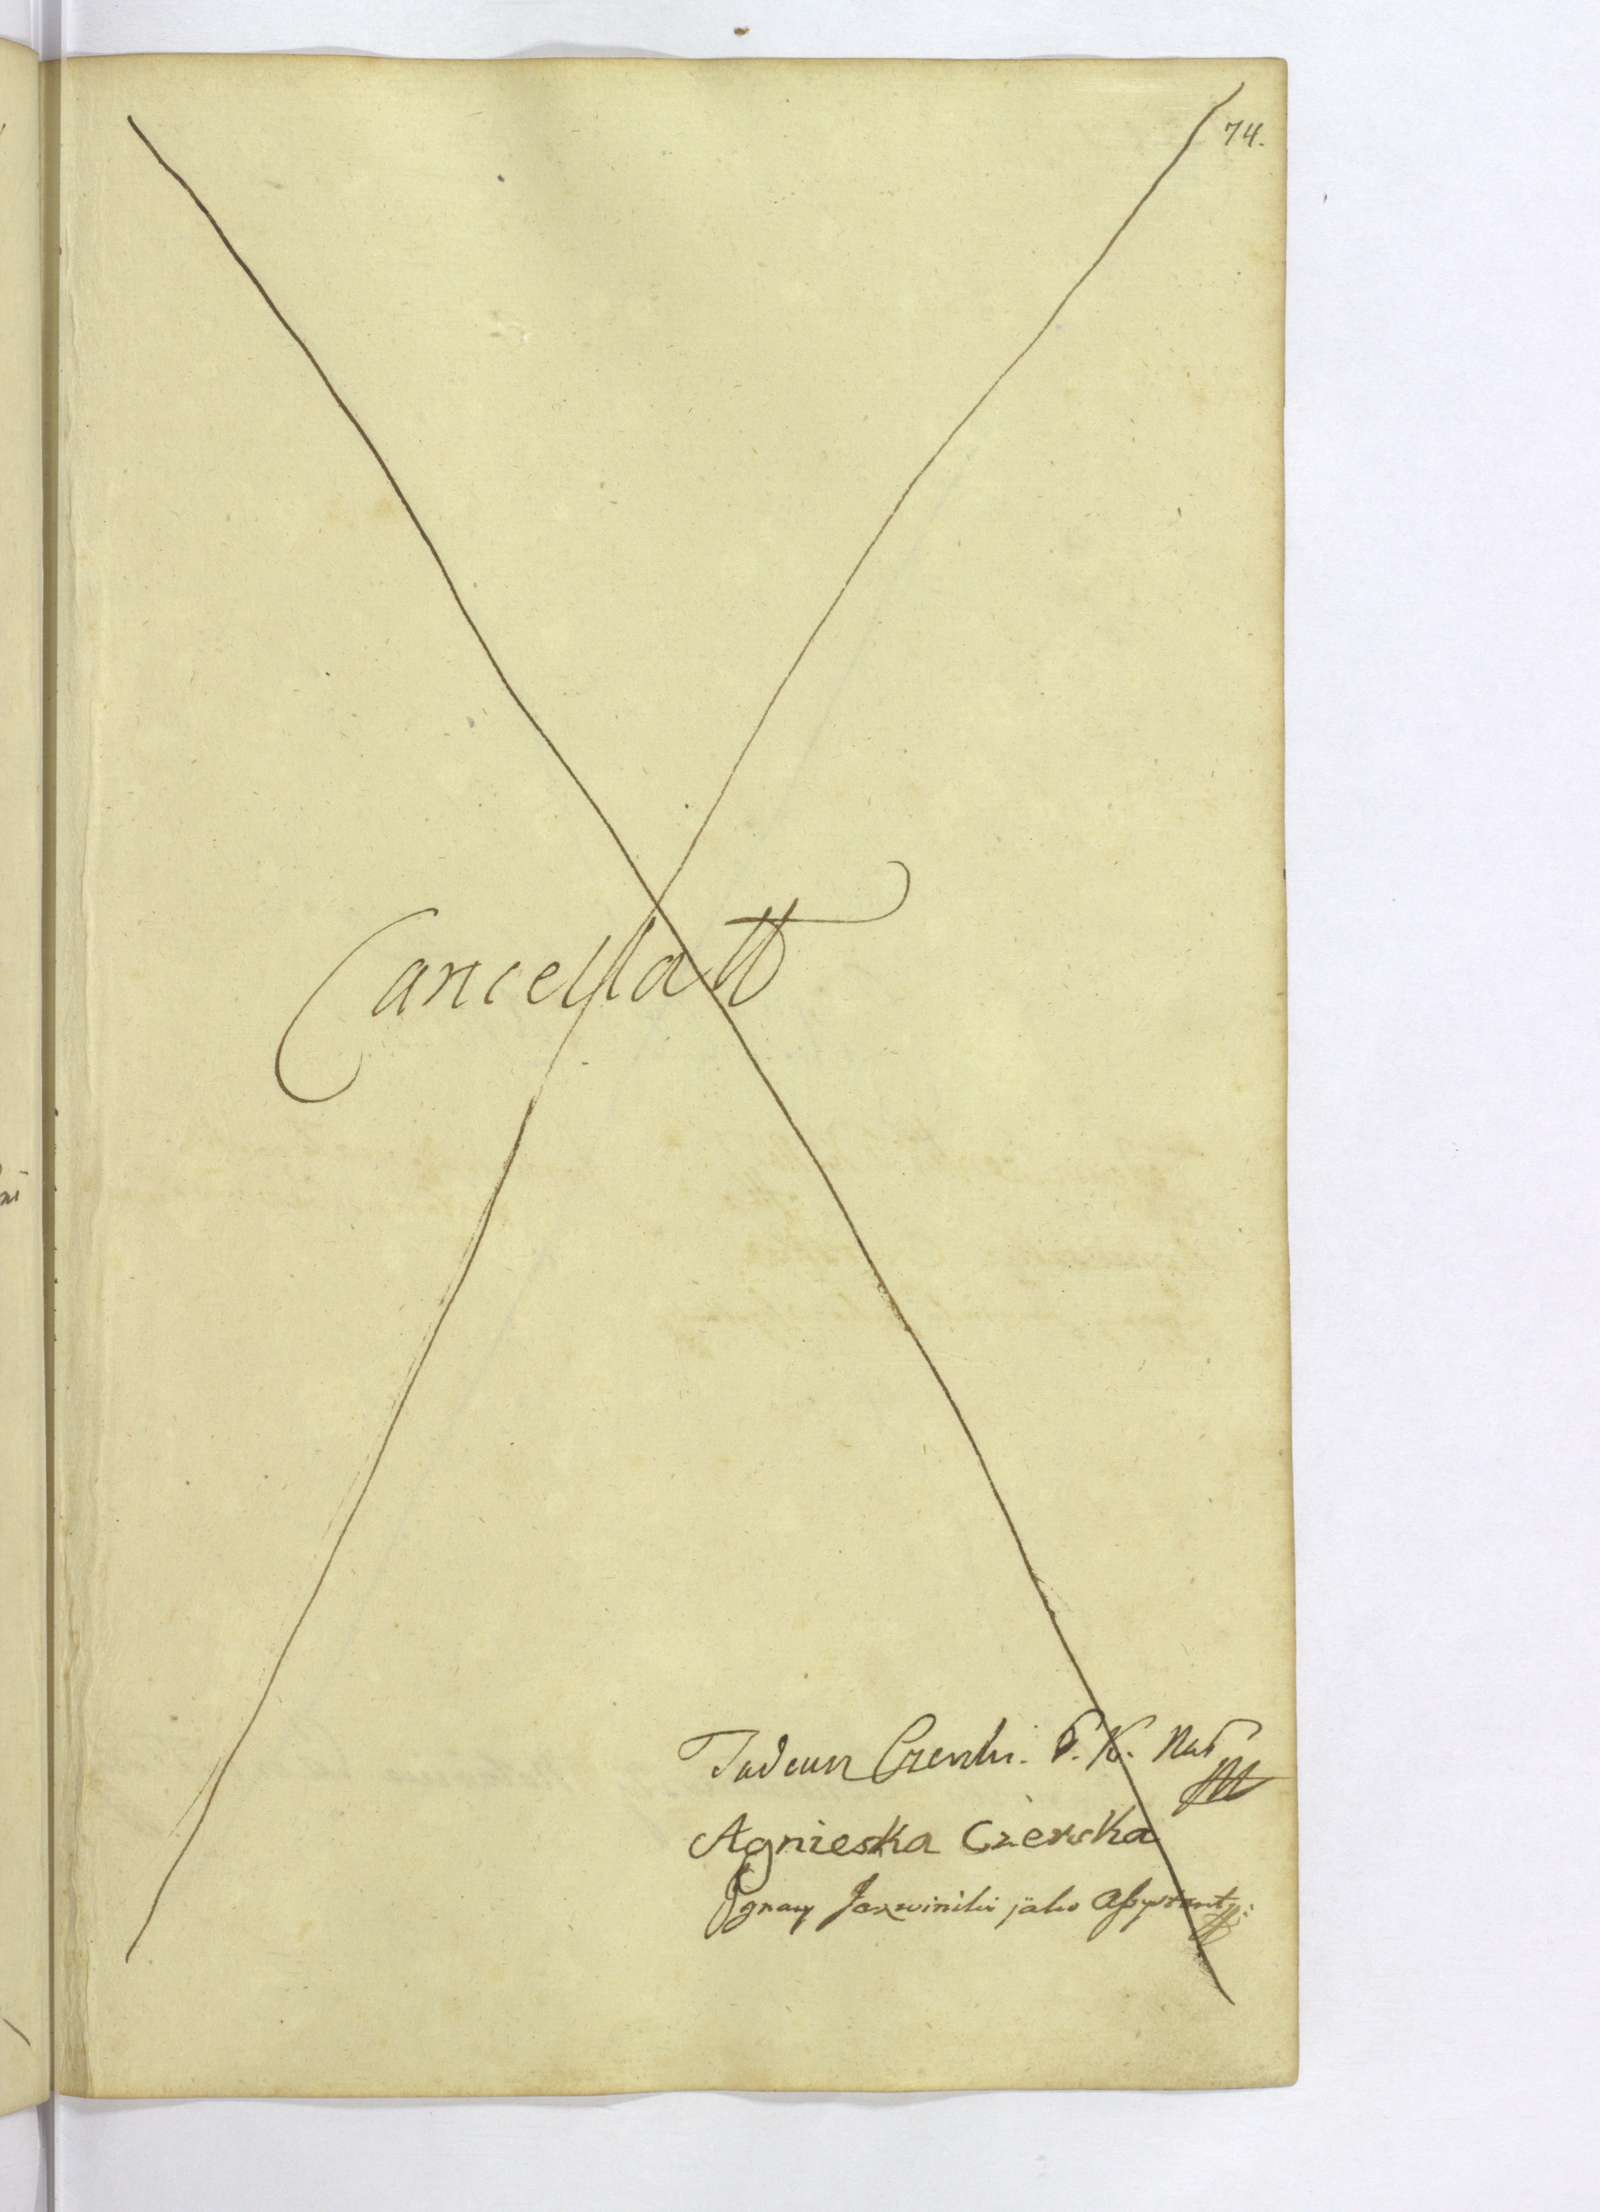 74.
Cancellatt
Tadeusz Czerski. P. K. Nat
Agnieska Czerska
Ignacy Jaxwiński jako Assystent